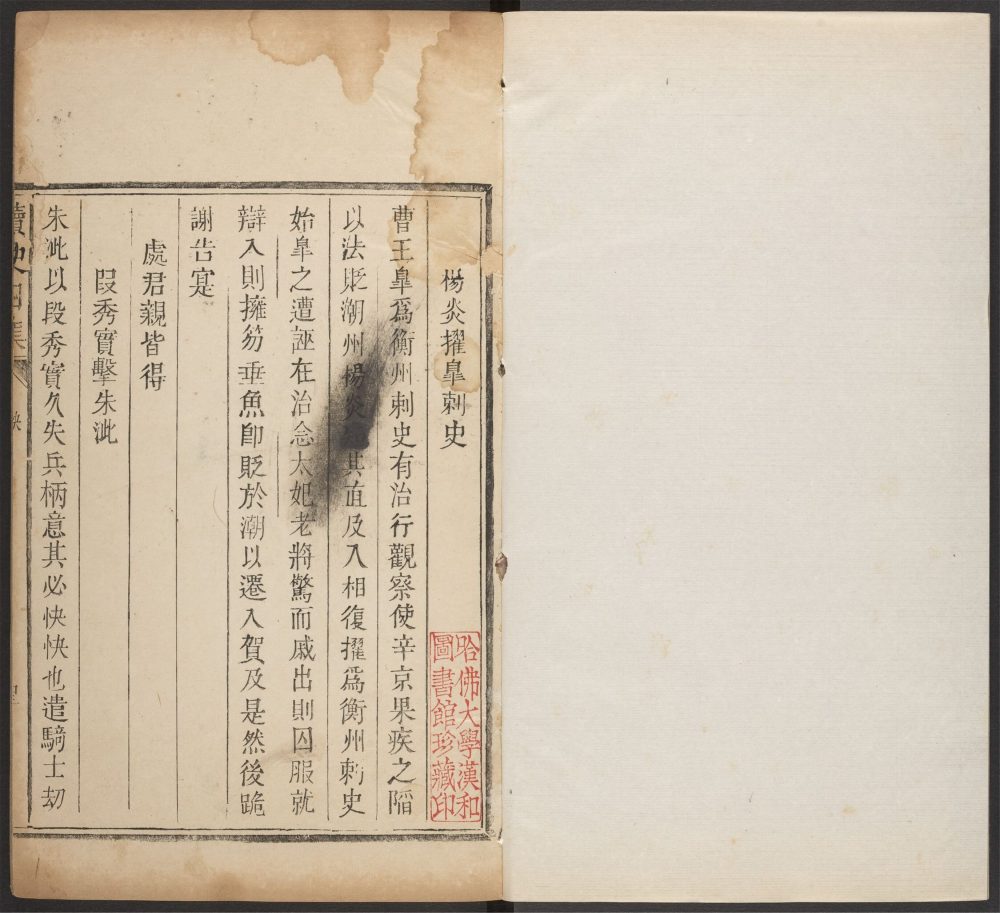 楊炎擢臯刺史
曹王臯爲衡州刺史有治行觀察使辛京杲疾之陷
以法貶潮州楊炎其直及入相復擢爲衡州刺史
始臯之遭誣在治念太妃老將驚而戚出則囚服就
辯入則擁笏垂魚卽貶於潮以遷入賀及是然後跪
謝告寔
處君親皆得
段秀實擊朱泚
朱泚以段秀實久失兵柄意其必怏怏也遣騎士刼
讀史四集
哈佛大學漢和
圖書館珍藏印